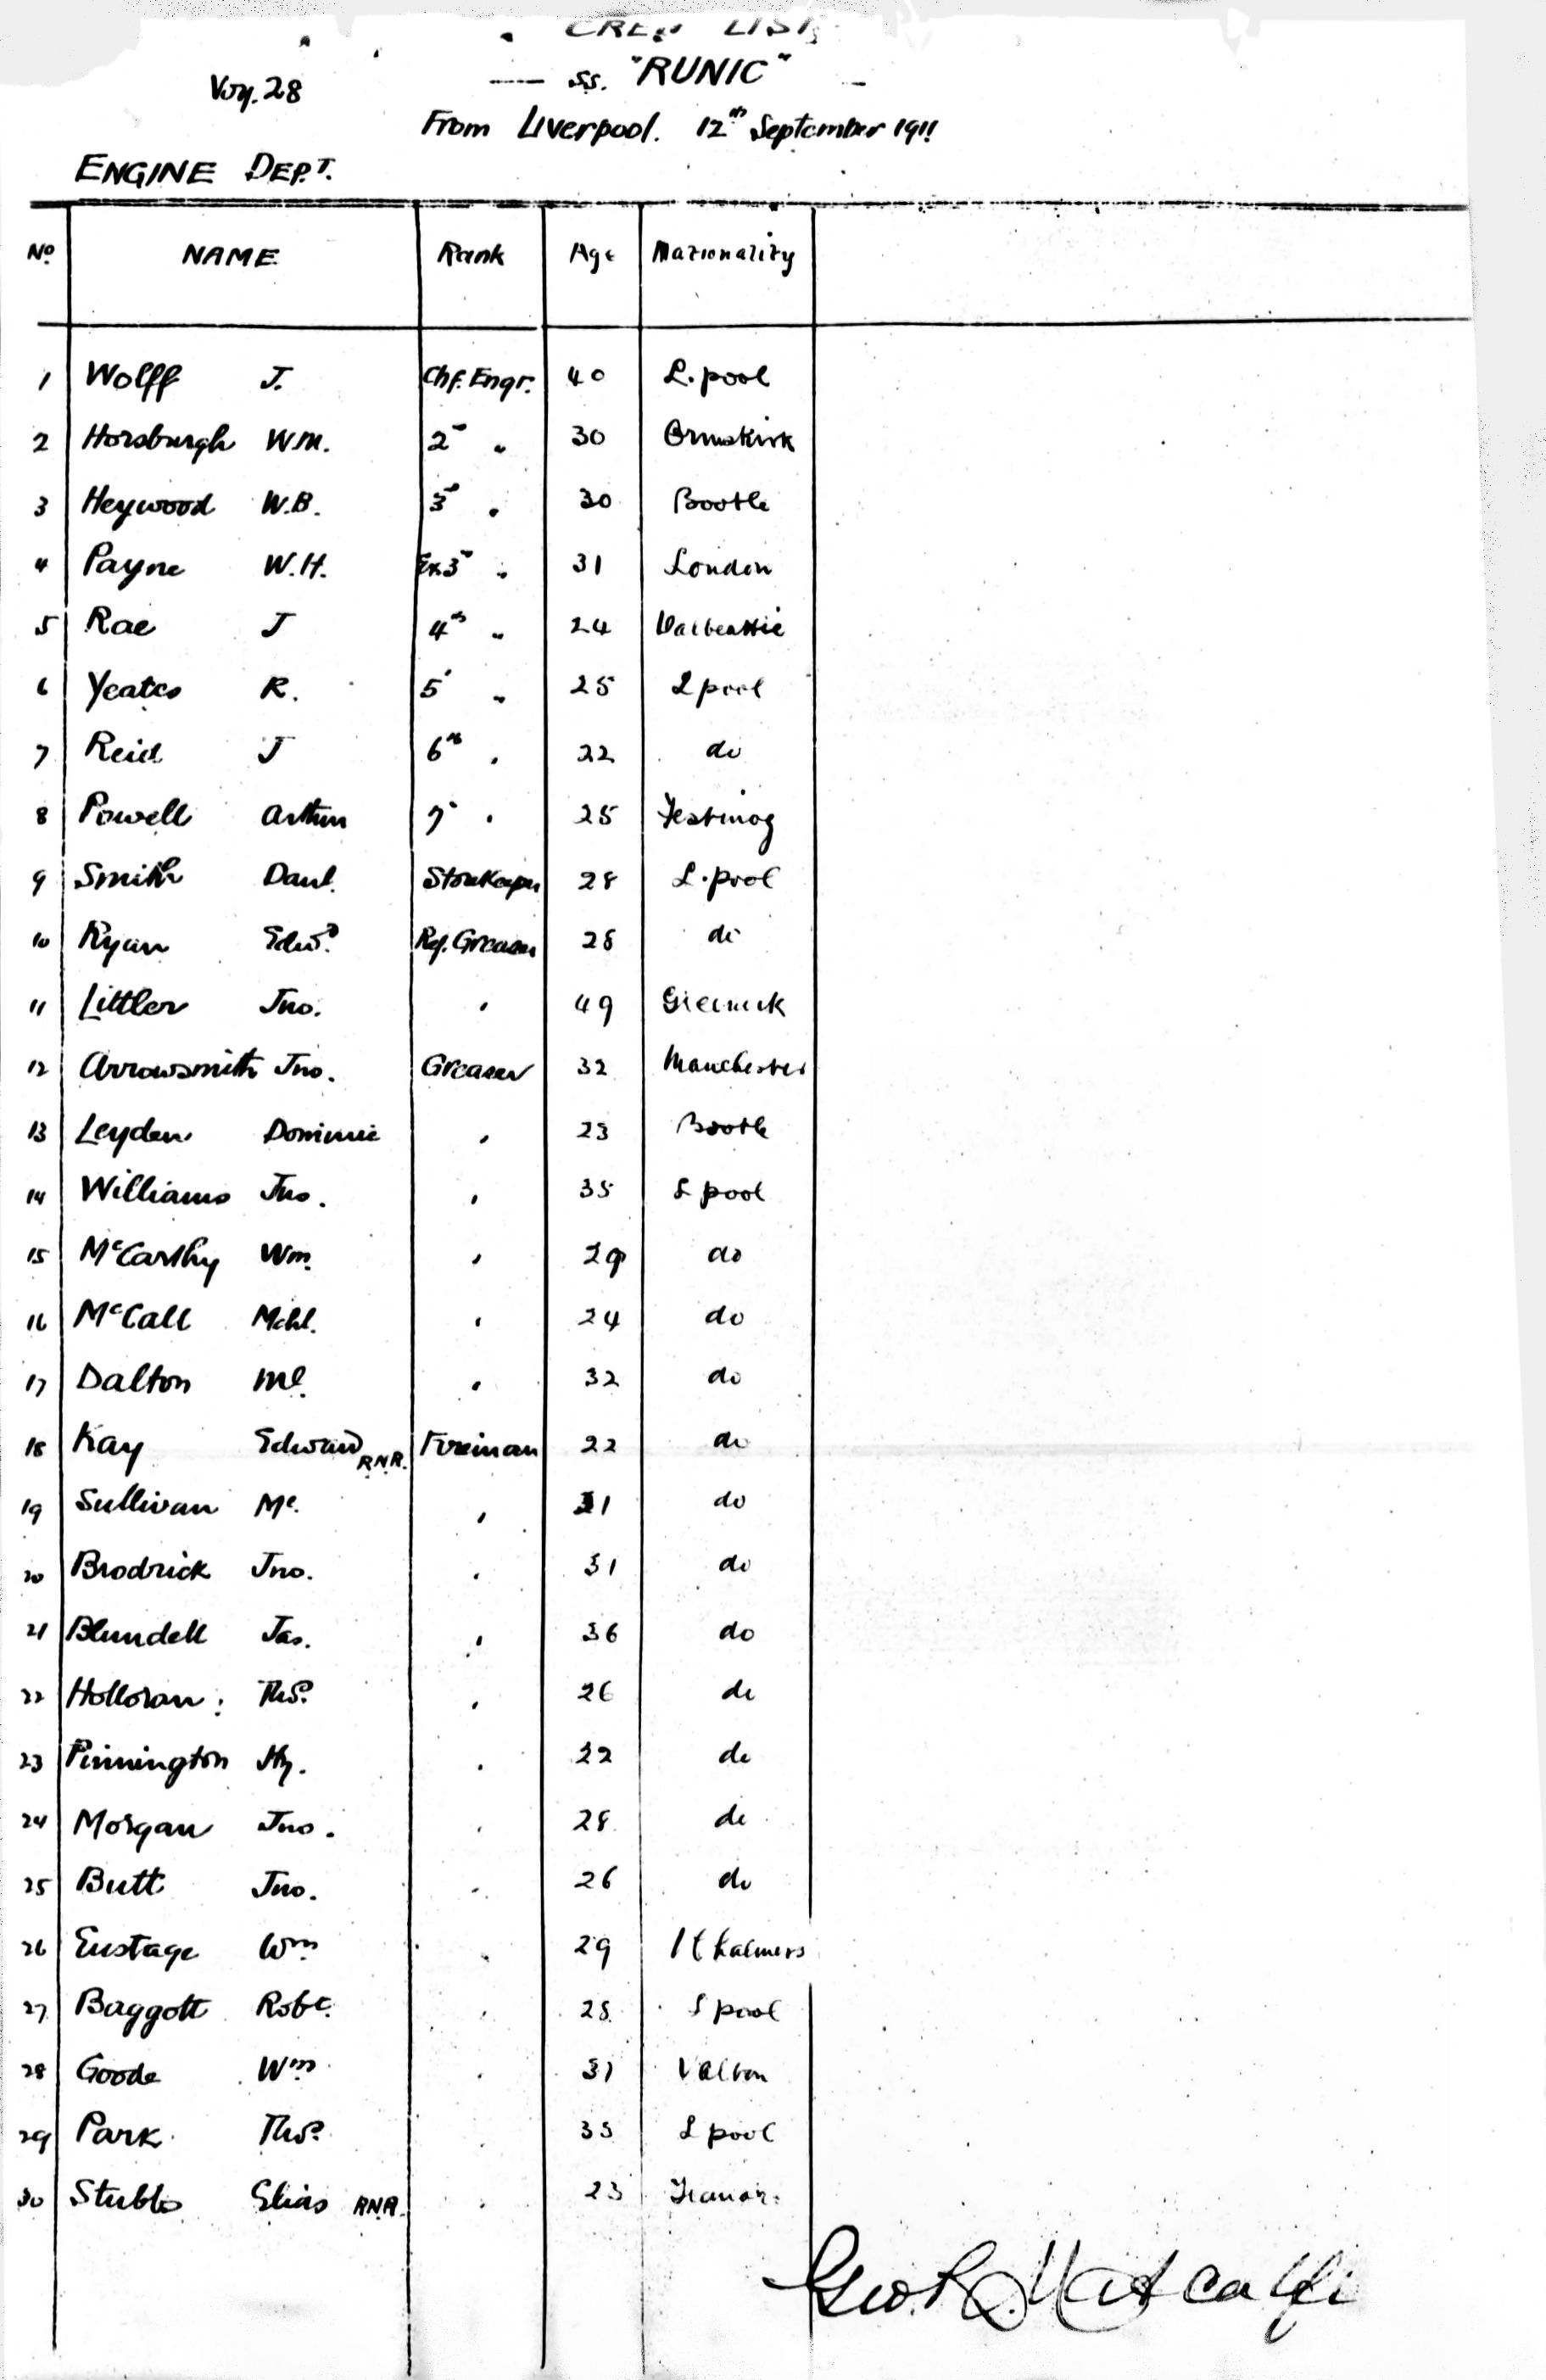 CREW LIST
Voy. 28
ss. "RUNIC"
From Liverpool. 12th September 1911
ENGINE DEPT.
No NAME Rank Age Nationality
1 Wolff J. Chf. Engr. 40 L.pool
2 Horsburgh W.M. 2nd " 30 Ormskirk
3 Heywood W.B. 3rd " 30 Bootle
4 Payne W.H. Ex 3rd " 31 London
5 Rae J 4th " 24 Dalbeattie
6 Yeates R. 5 " 25 Lpool
7 Reid J 6th " 22 do
8 Powell Arthur 7 " 25 Festiniog
9 Smith Danl. Storekeeper 28 L.pool
10 Ryan Edwd. Ref. Greaser 28 do
11 Littler Jno. " 49
12 Arrowsmith Jno. Greaser 32 Manchester
13 Leyden Dominic " 23 Bootle
14 Williams Jno. " 35 Lpool
15 McCarthy Wm. " 29 do
16 McCall Mchl. " 24 do
17 Dalton Ml. " 32 do
18 Kay Edward RNR. Fireman 22 do
19 Sullivan Ml. " 31 do
20 Brodrick Jno. " 31 do
21 Blundell Jas. " 36 do
22 Holloran Thos. " 26 do
23 Pinnington Hy. " 22 do
24 Morgan Jno. " 28 do
25 Butt Jno. " 26 do
26 Eustage Wm " 29
27 Baggott Robt. " 28 Lpool
28 Goode Wm " 31 Walton
29 Park Thos. " 35 Lpool
30 Stubbs Elias RNR. " 23
Geo. R. Metcalfe